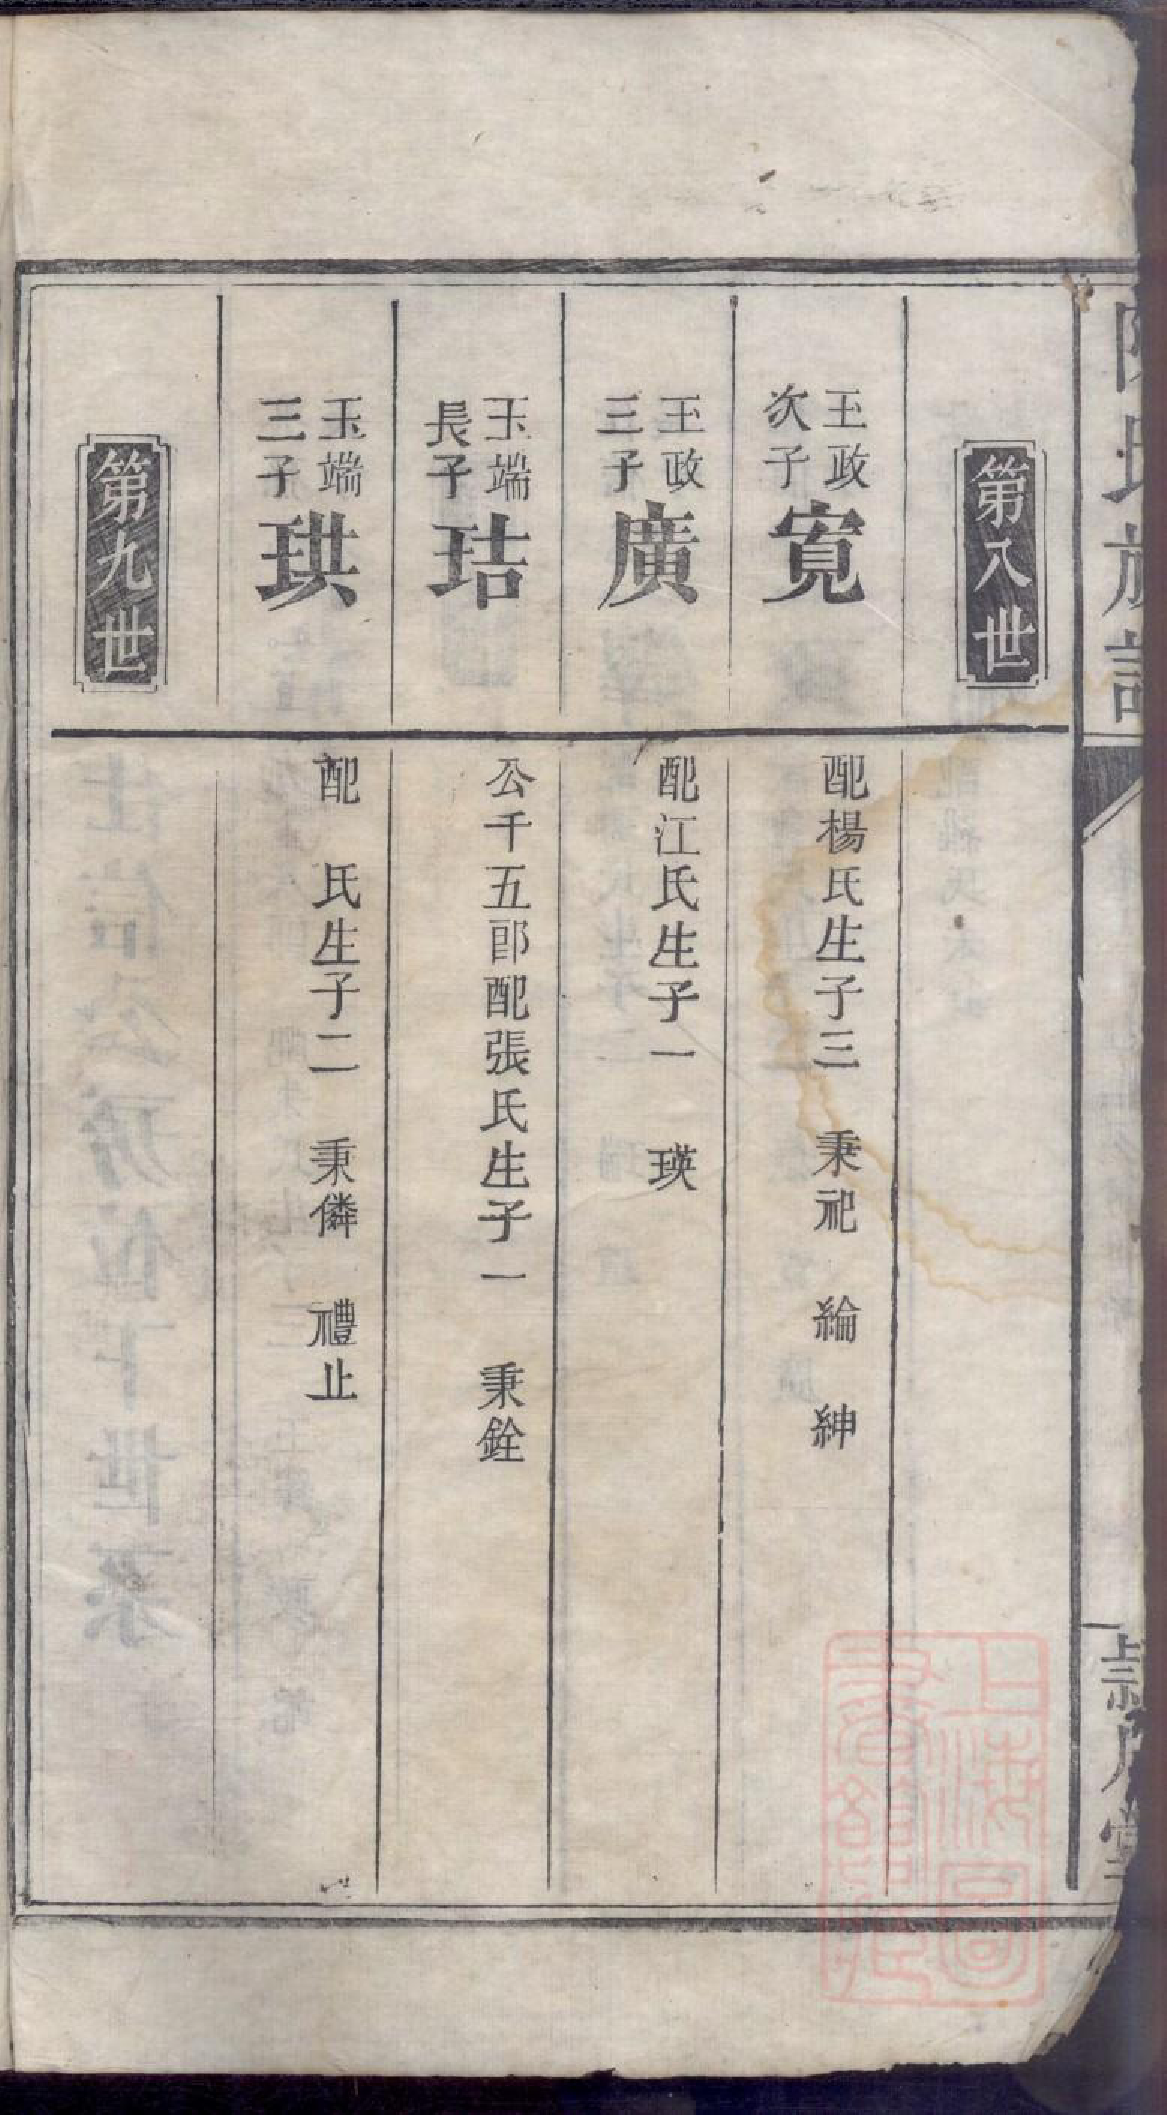 第八世
玉政
次子
寛
配楊氏生子三　秉祀　綸　紳
玉政
三子
廣
配江氏生子一　瑛
玉端
長子
珪
公千五郎配張氏生子一　秉銓
玉端
三子
珙
配　氏生子二　秉僯　禮止
第九世
上海圖
書館藏